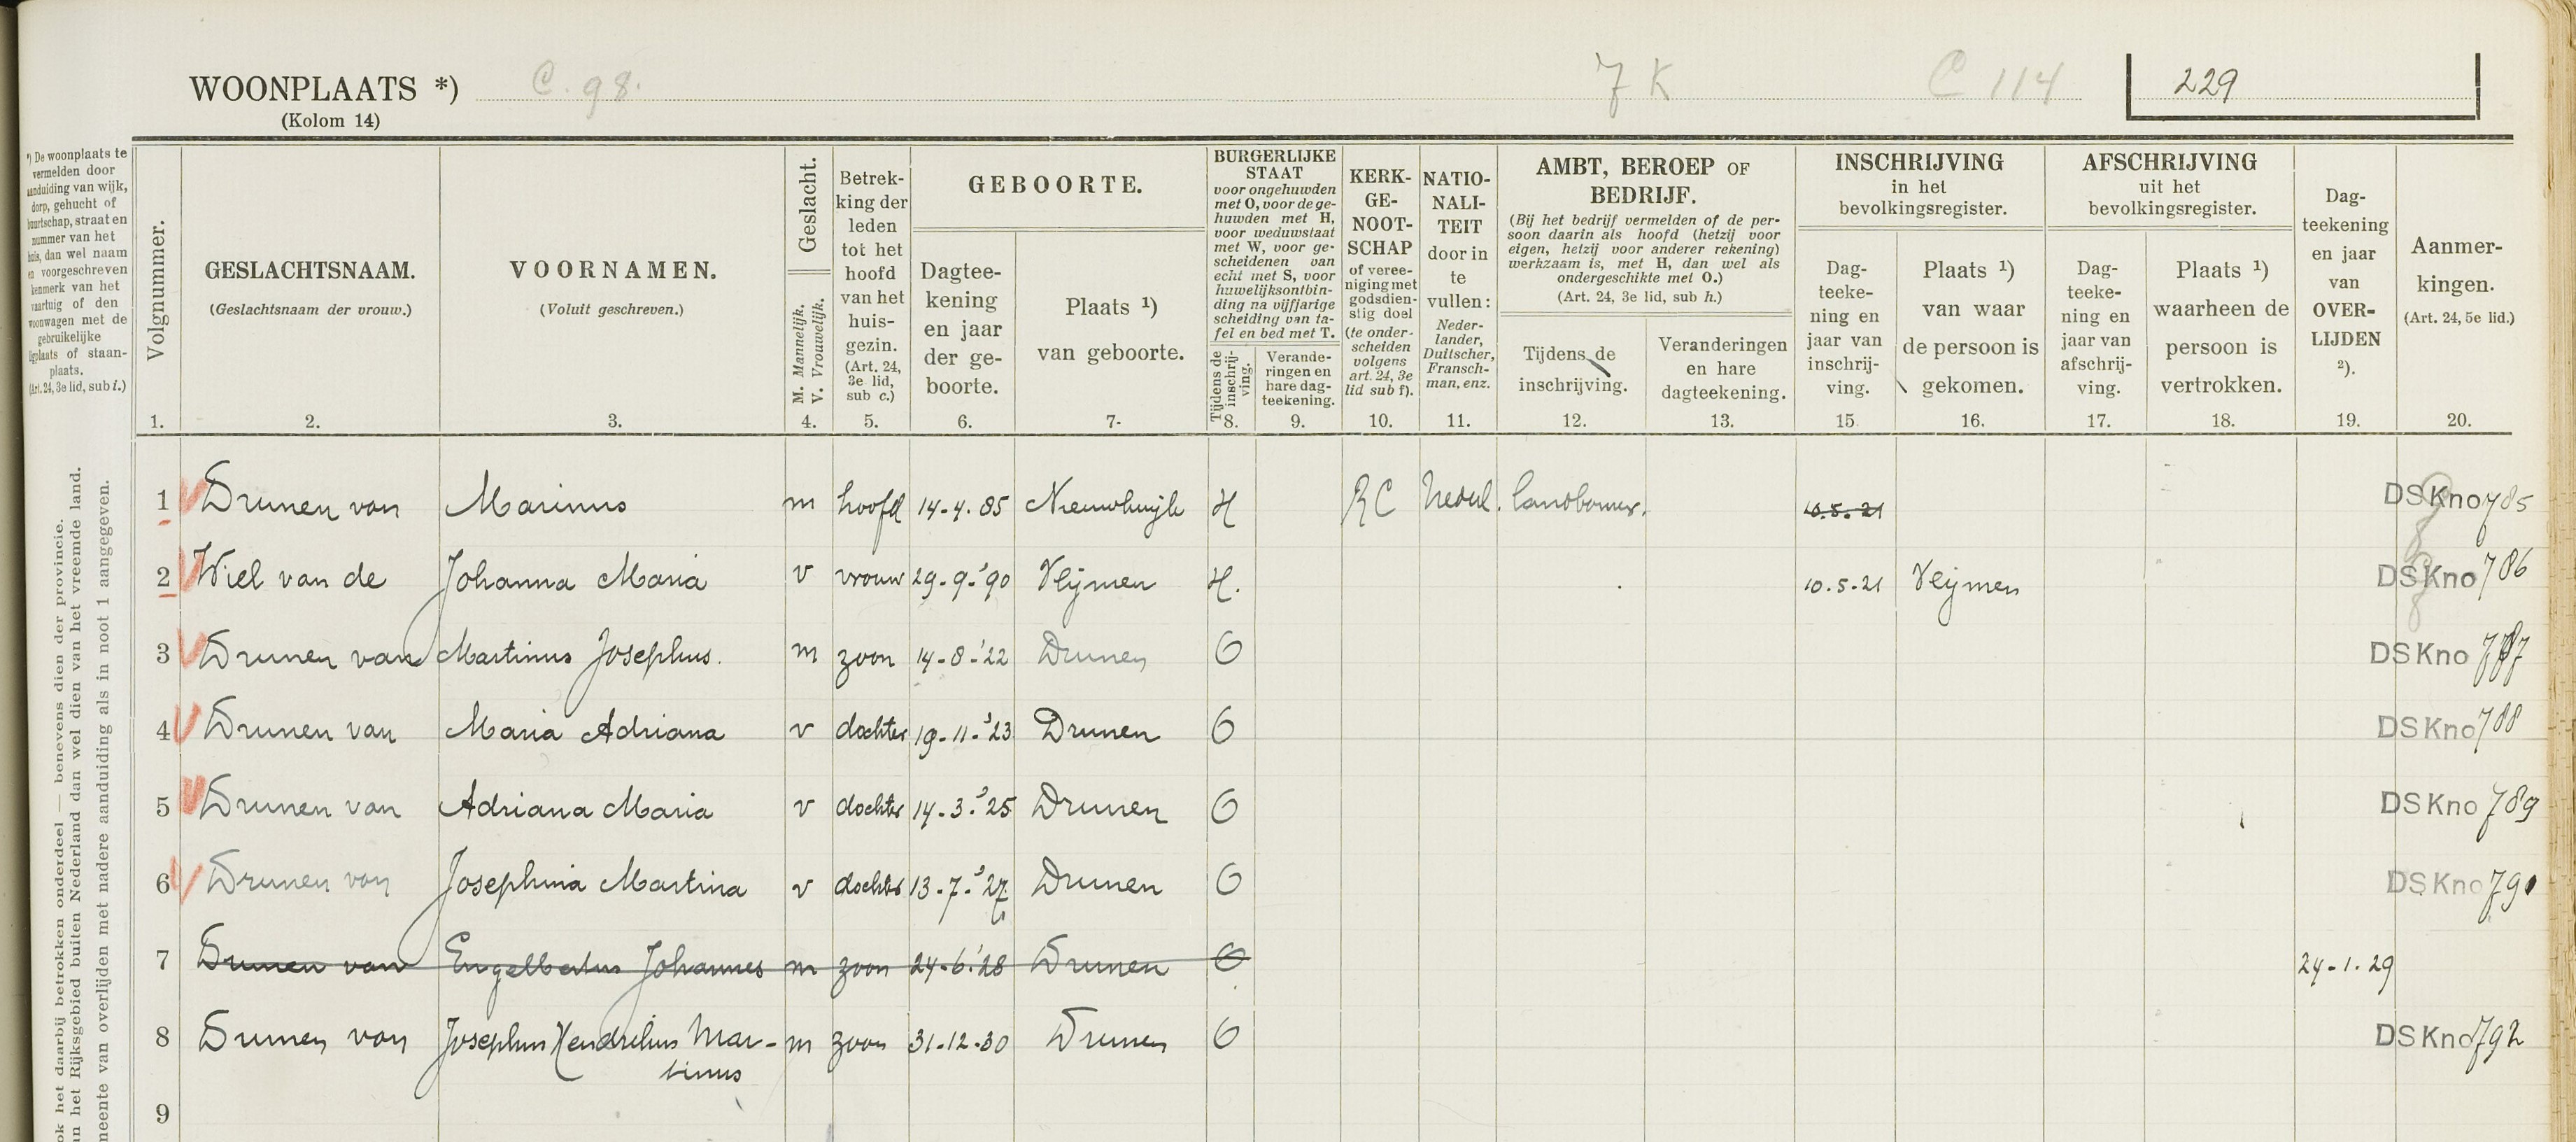 WOONPLAATS *) C. 98. 7 K C 114 229
(Kolom 14)
*) De woonplaats te
vermelden door
aanduiding van wijk,
dorp, gehucht of
buurtschap, straat en
nummer van het
huis, dan wel naam
en voorgeschreven
kenmerk van het
vaartuig of den
woonwagen met de
gebruikelijke
ligplaats of staan-
plaats.
(Art. 24, 3e lid, sub i.)
ok het daarbij betrokken onderdeel — benevens dien der provincie.
an het Rijksgebied buiten Nederland dan wel dien van het vreemde land.
meente van overlijden met nadere aanduiding als in noot 1 aangegeven.
Volgnummer.
1.
GESLACHTSNAAM.
(Geslachtsnaam der vrouw.)
2.
VOORNAMEN.
(Voluit geschreven.)
3.
Geslacht.
M. Mannelijk.
V. Vrouwelijk.
4.
Betrek-
king der
leden
tot het
hoofd
van het
huis-
gezin.
(Art. 24,
3e lid,
sub c.)
5.
GEBOORTE.
Dagtee-
kening
en jaar
der ge-
boorte.
6.
Plaats ¹)
van geboorte.
7.
BURGERLIJKE
STAAT
voor ongehuwden
met O, voor de ge-
huwden met H,
voor weduwstaat
met W, voor ge-
scheidenen van
echt met S, voor
huwelijksontbin-
ding na vijfjarige
scheiding van ta-
fel en bed met T.
Tijdens de
inschrij-
ving.
8.
Verande-
ringen en
hare dag-
teekening.
9.
KERK-
GE-
NOOT-
SCHAP
of veree-
niging met
godsdien-
stig doel
(te onder-
scheiden
volgens
art. 24, 3e
lid sub f).
10.
NATIO-
NALI-
TEIT
door in
te
vullen:
Neder-
lander,
Duitscher,
Fransch-
man, enz.
11.
AMBT, BEROEP OF
BEDRIJF.
(Bij het bedrijf vermelden of de per-
soon daarin als hoofd (hetzij voor
eigen, hetzij voor anderer rekening)
werkzaam is, met H, dan wel als
ondergeschikte met O.)
(Art. 24, 3e lid, sub h.)
Tijdens de
inschrijving.
12.
Veranderingen
en hare
dagteekening.
13.
INSCHRIJVING
in het
bevolkingsregister.
Dag-
teeke-
ning en
jaar van
inschrij-
ving.
15.
Plaats ¹)
van waar
de persoon is
gekomen.
16.
AFSCHRIJVING
uit het
bevolkingsregister.
Dag-
teeke-
ning en
jaar van
afschrij-
ving.
17.
Plaats ¹)
waarheen de
persoon is
vertrokken.
18.
Dag-
teekening
en jaar
van
OVER-
LIJDEN
²).
19.
Aanmer-
kingen.
(Art. 24, 5e lid.)
20.
1 Drunen van Marinus m hoofd 14-4.85 Nieuwkuijk H RC Nederl. landbouwer. 10.5.21 DSKno 785
2 Wiel van de Johanna Maria v vrouw 29-9-'90 Vlijmen H. 10.5-21 Vlijmen DSKno 786
3 Drunen van Martinus Josephus. m zoon 14-8-'22 Drunen O DSKno 787
4 Drunen van Maria Adriana v dochter 19-11-'23 Drunen O DSKno 788
5 Drunen van Adriana Maria v dochter 14-3-'25 Drunen O DSKno 789
6 Drunen van Josephina Martina v dochter 13-7-'27 Drunen O DSKno 790
7 Drunen van Engelbertus Johannes m zoon 24-6-'28 Drunen O 24-1.29
8 Drunen van Josephus Hendrikus Mar- m zoon 31-12-30 Drunen O DSKno 792
tinus
9